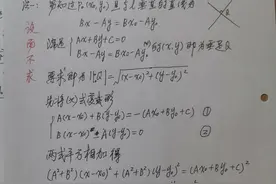 法一:
过P₀(x₀,y₀)且与l垂直的直线为
Bx-Ay=Bx₀-Ay₀
设而不求
Ax+By+C=0
Bx-Ay=Bx₀-Ay₀
的(x,y)即为垂足Q
要求 即 |P₀Q|=√(x-x₀)²+(y-y₀)²
先将(*)式变形
A(x-x₀)+B(y-y₀)=-(Ax₀+By₀+C) ①
B(x-x₀)-A(y-y₀)=0 ②
两式平方相加得
(A²+B²)(x-x₀)²+(A²+B²)(y-y₀)²=(Ax₀+By₀+C)²